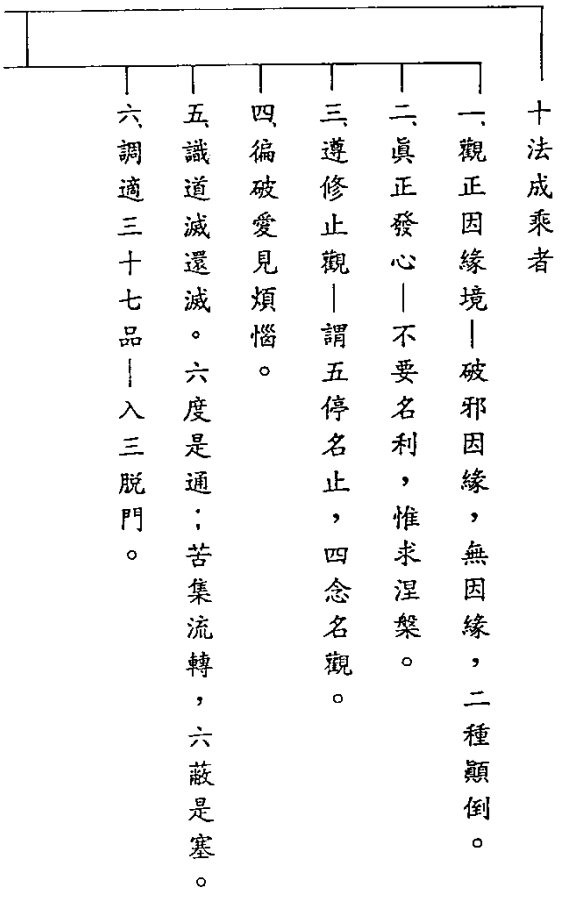 十法成乘者
一、觀正因緣境—破邪因緣，無因緣，二種顚倒。
二、眞正發心—不要名利，惟求涅槃。
三、遵修止觀—謂五停名止，四念名觀。
四、徧破愛見煩惱。
五、識道滅還滅。六度是通；苦集流轉，六蔽是塞。
六、調適三十七品—入三脱門。